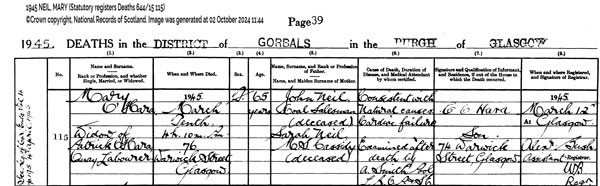 1945 NEIL, MARY (Statutory registers Deaths 644/15 115)
©Crown copyright, National Records of Scotland. Image was generated at 02 October 2024 11:44
Page 39
1945. DEATHS in the DISTRICT of GORBALS in the BURGH of GLASGOW
(1.) (2.) (3.) (4.) (5.) (6.) (7.) (8.)
No.
Name and Surname.
Rank or Profession, and whether Single, Married, or Widowed.
When and Where Died.
Sex.
Age.
Name, Surname, and Rank or Profession of Father.
Name, and Maiden Surname of Mother.
Cause of Death, Duration of Disease, and Medical Attendant by whom certified.
Signature and Qualification of Informant, and Residence, if out of the House in which the Death occurred.
When and where Registered, and Signature of Registrar.
115
Mary
O'Hara
Widow of
Patrick O'Hara
Quay Labourer
1945.
March
Tenth
4h. 10m.
76
Warwick Street
Glasgow
F
65
years
John Neil
Coal Salesman
(deceased)
Sarah Neil
M.S. Cassidy
(deceased)
Consistent with
Natural causes
Cardiac failure
Examined after
death by
A. Smith
Son
74 Warwick
Street, Glasgow
1945.
March 12
At Glasgow
Assistant Registrar.